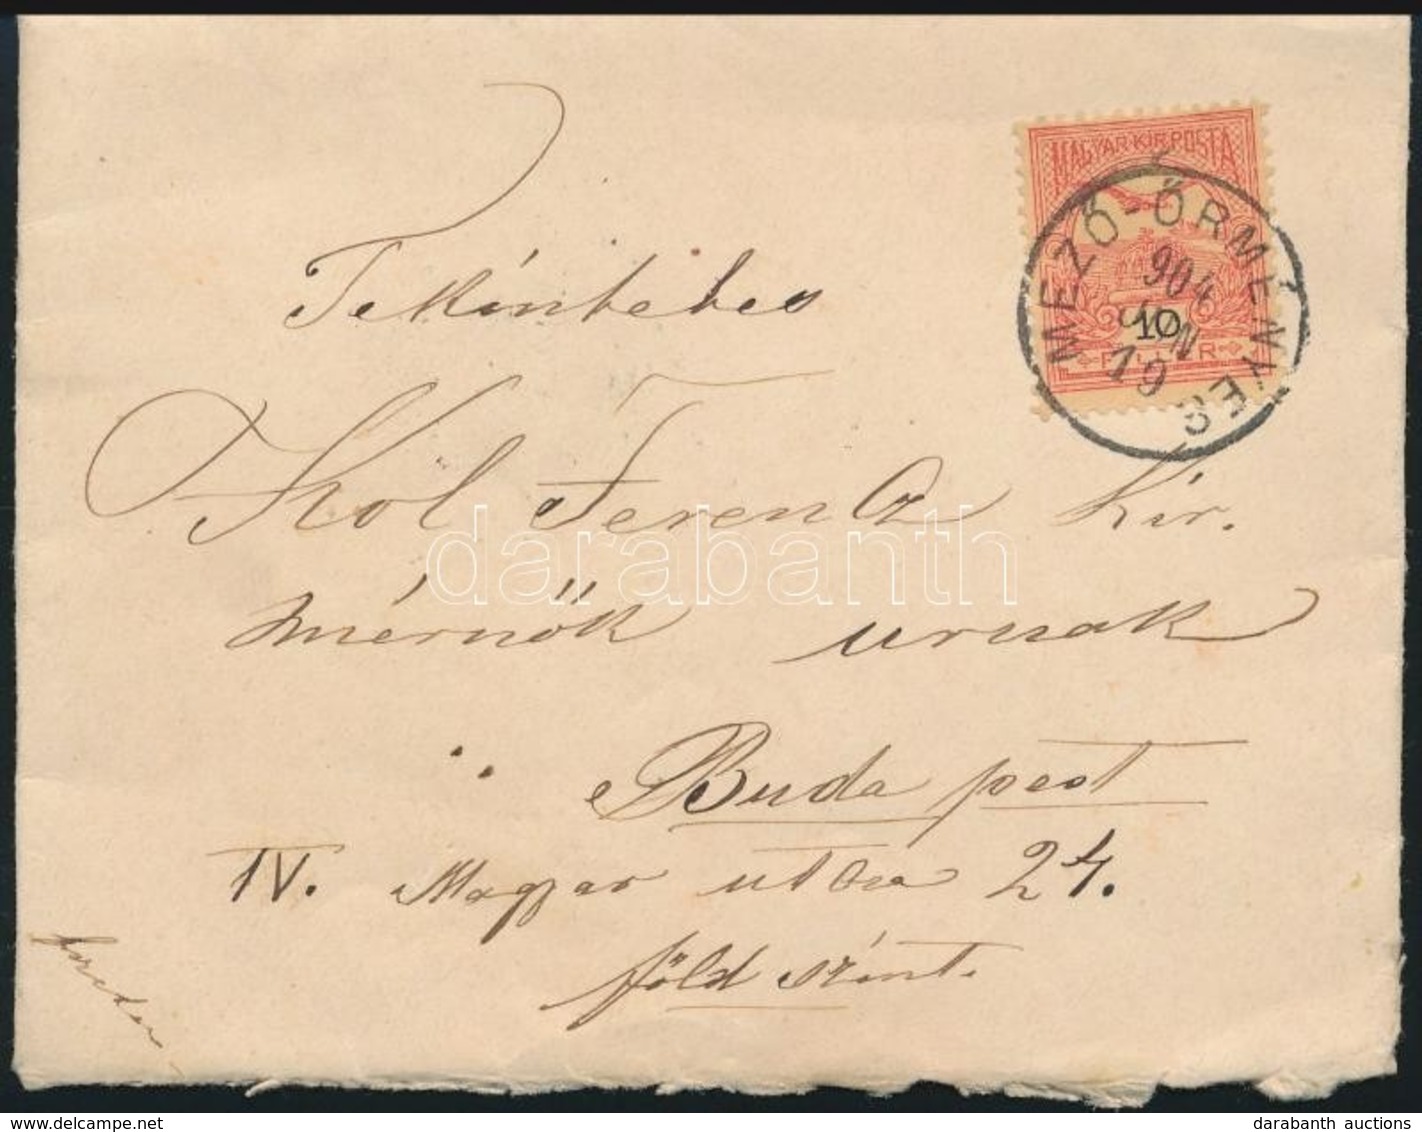 MAGYAR KIR. POSTA
MEZŐ-ÖRMÉNYES
904
JUN
19
10
FILLÉR
Tekintetes
Kól Ferencz kir.
mérnök urnak
Buda pest
IV. Magyar utcza 24.
föld szint.
darabanth
darabanth auctions